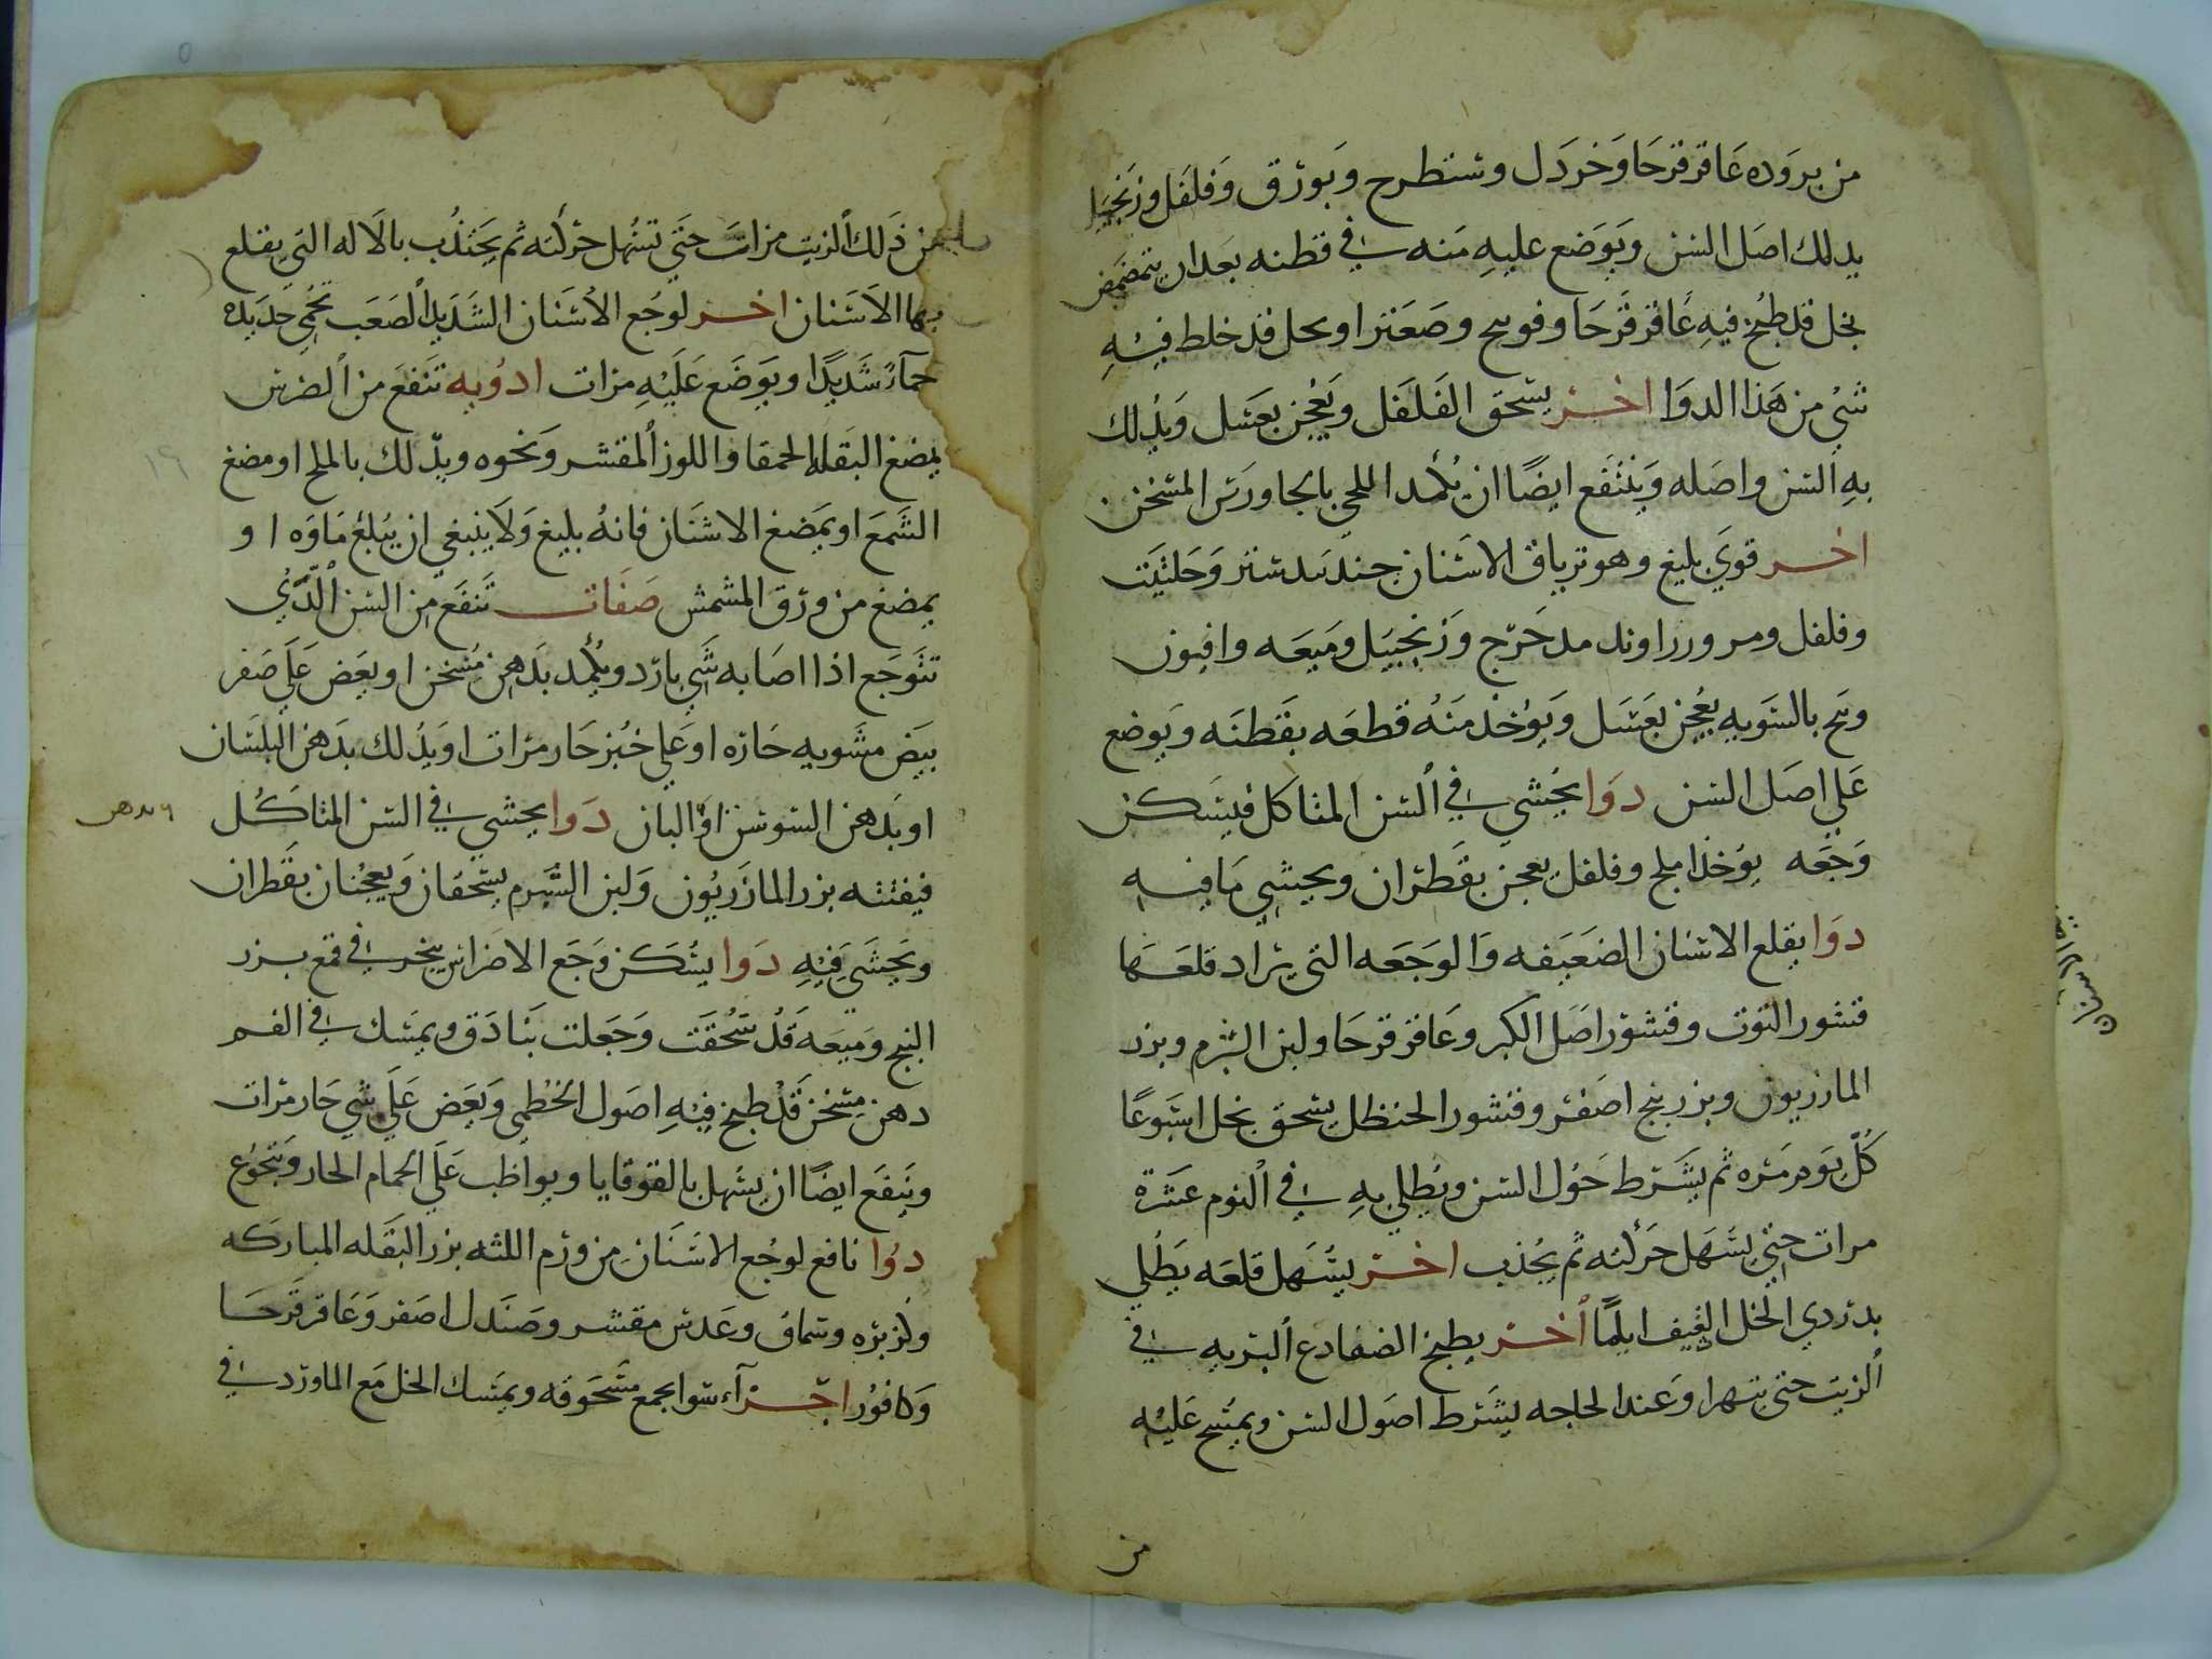 من بروده عاقرقرحا وخردل وشيطرح وبورق وفلفل وزنجبيل
يدلك اصل السن ويوضع عليه منه في قطنه بعد ان يتمضمض
بخل قد طبخ فيه عاقرقرحا وفوتنج وصعتر او بخل قد خلط فيه
شي من هذا الدوا اخر يسحق الفلفل ويعجن بعسل ويدلك
به السن واصله وينتفع ايضا ان يكمد اللحي بالجاورس المسخن
اخر قوي بليغ وهو ترياق الاسنان جندبيدستر وحلتيت
وفلفل ومر وزراوند مدحرج وزنجبيل وميعه وافيون
وبنج بالسويه يعجن بعسل ويوخذ منه قطعه بقطنه ويوضع
علي اصل السن دوا يحشي في السن المتاكل فيسكن
وجعه يوخذ ملح وفلفل يعجن بقطران ويحشي ما فيه
دوا يقلع الاسنان الضعيفه والوجعه التي يراد قلعها
قشور التوت وقشور اصل الكبر وعاقرقرحا ولبن الشبرم وبزر
المازريون وبزر بنج اصفر وقشور الحنظل يسحق بخل اسبوعا
كل يوم مره ثم يشرط حول السن ويطلي به في اليوم عشرة
مرات حتي يسهل حركته ثم يجذب اخر يسهل قلعه يطلي
بدردي الخل الثقيف اياما اخر يطبخ الضفادع البريه في
الزيت حتي يتهرا وعند الحاجه يشرط اصول السن ويمسح عليه
من
من ذلك الزيت مرات حتي تسهل حركته ثم يجتذب بالاله التي يقلع
بها الاسنان اخر لوجع الاسنان الشديد الصعب تحمي حديده
حماء شديدا ويوضع عليه مرات ادويه تنفع من الضرس
يمضغ البقله الحمقا واللوز المقشر ونحوه ويدلك بالملح او مضغ
الشمع او يمضغ الاشنان فانه بليغ ولا ينبغي ان يبلع ماوه او
يمضغ من ورق المشمش صفات تنفع من السن الذي
تتوجع اذا اصابه شي بارد ويكمد بدهن مسخن او يعض علي صفر
بيض مشويه حاره او علي خبز حار مرات او يدلك بدهن البلسان
او بدهن السوسن او البان دوا يحشي في السن المتاكل
فيفتته بزر المازريون ولبن الشبرم يسحقان ويعجنان بقطران
ويحشي فيه دوا يسكن وجع الاضراس يبخر في قمع بزر
البنج وميعه قد سحقت وجعلت بنادق ويمسك في الفم
دهن مسخن قد طبخ فيه اصول الخطمي ويعض علي شي حار مرات
وينفع ايضا ان يسهل بالقوقايا ويواظب علي الحمام الحار ويتجوع
دوا نافع لوجع الاسنان من ورم اللثه بزر البقله المباركه
وكزبره وسماق وعدس مقشر وصندل اصفر وعاقرقرحا
وكافور اجزآء سوا يجمع مسحوقه ويمسك الخل مع الماورد في